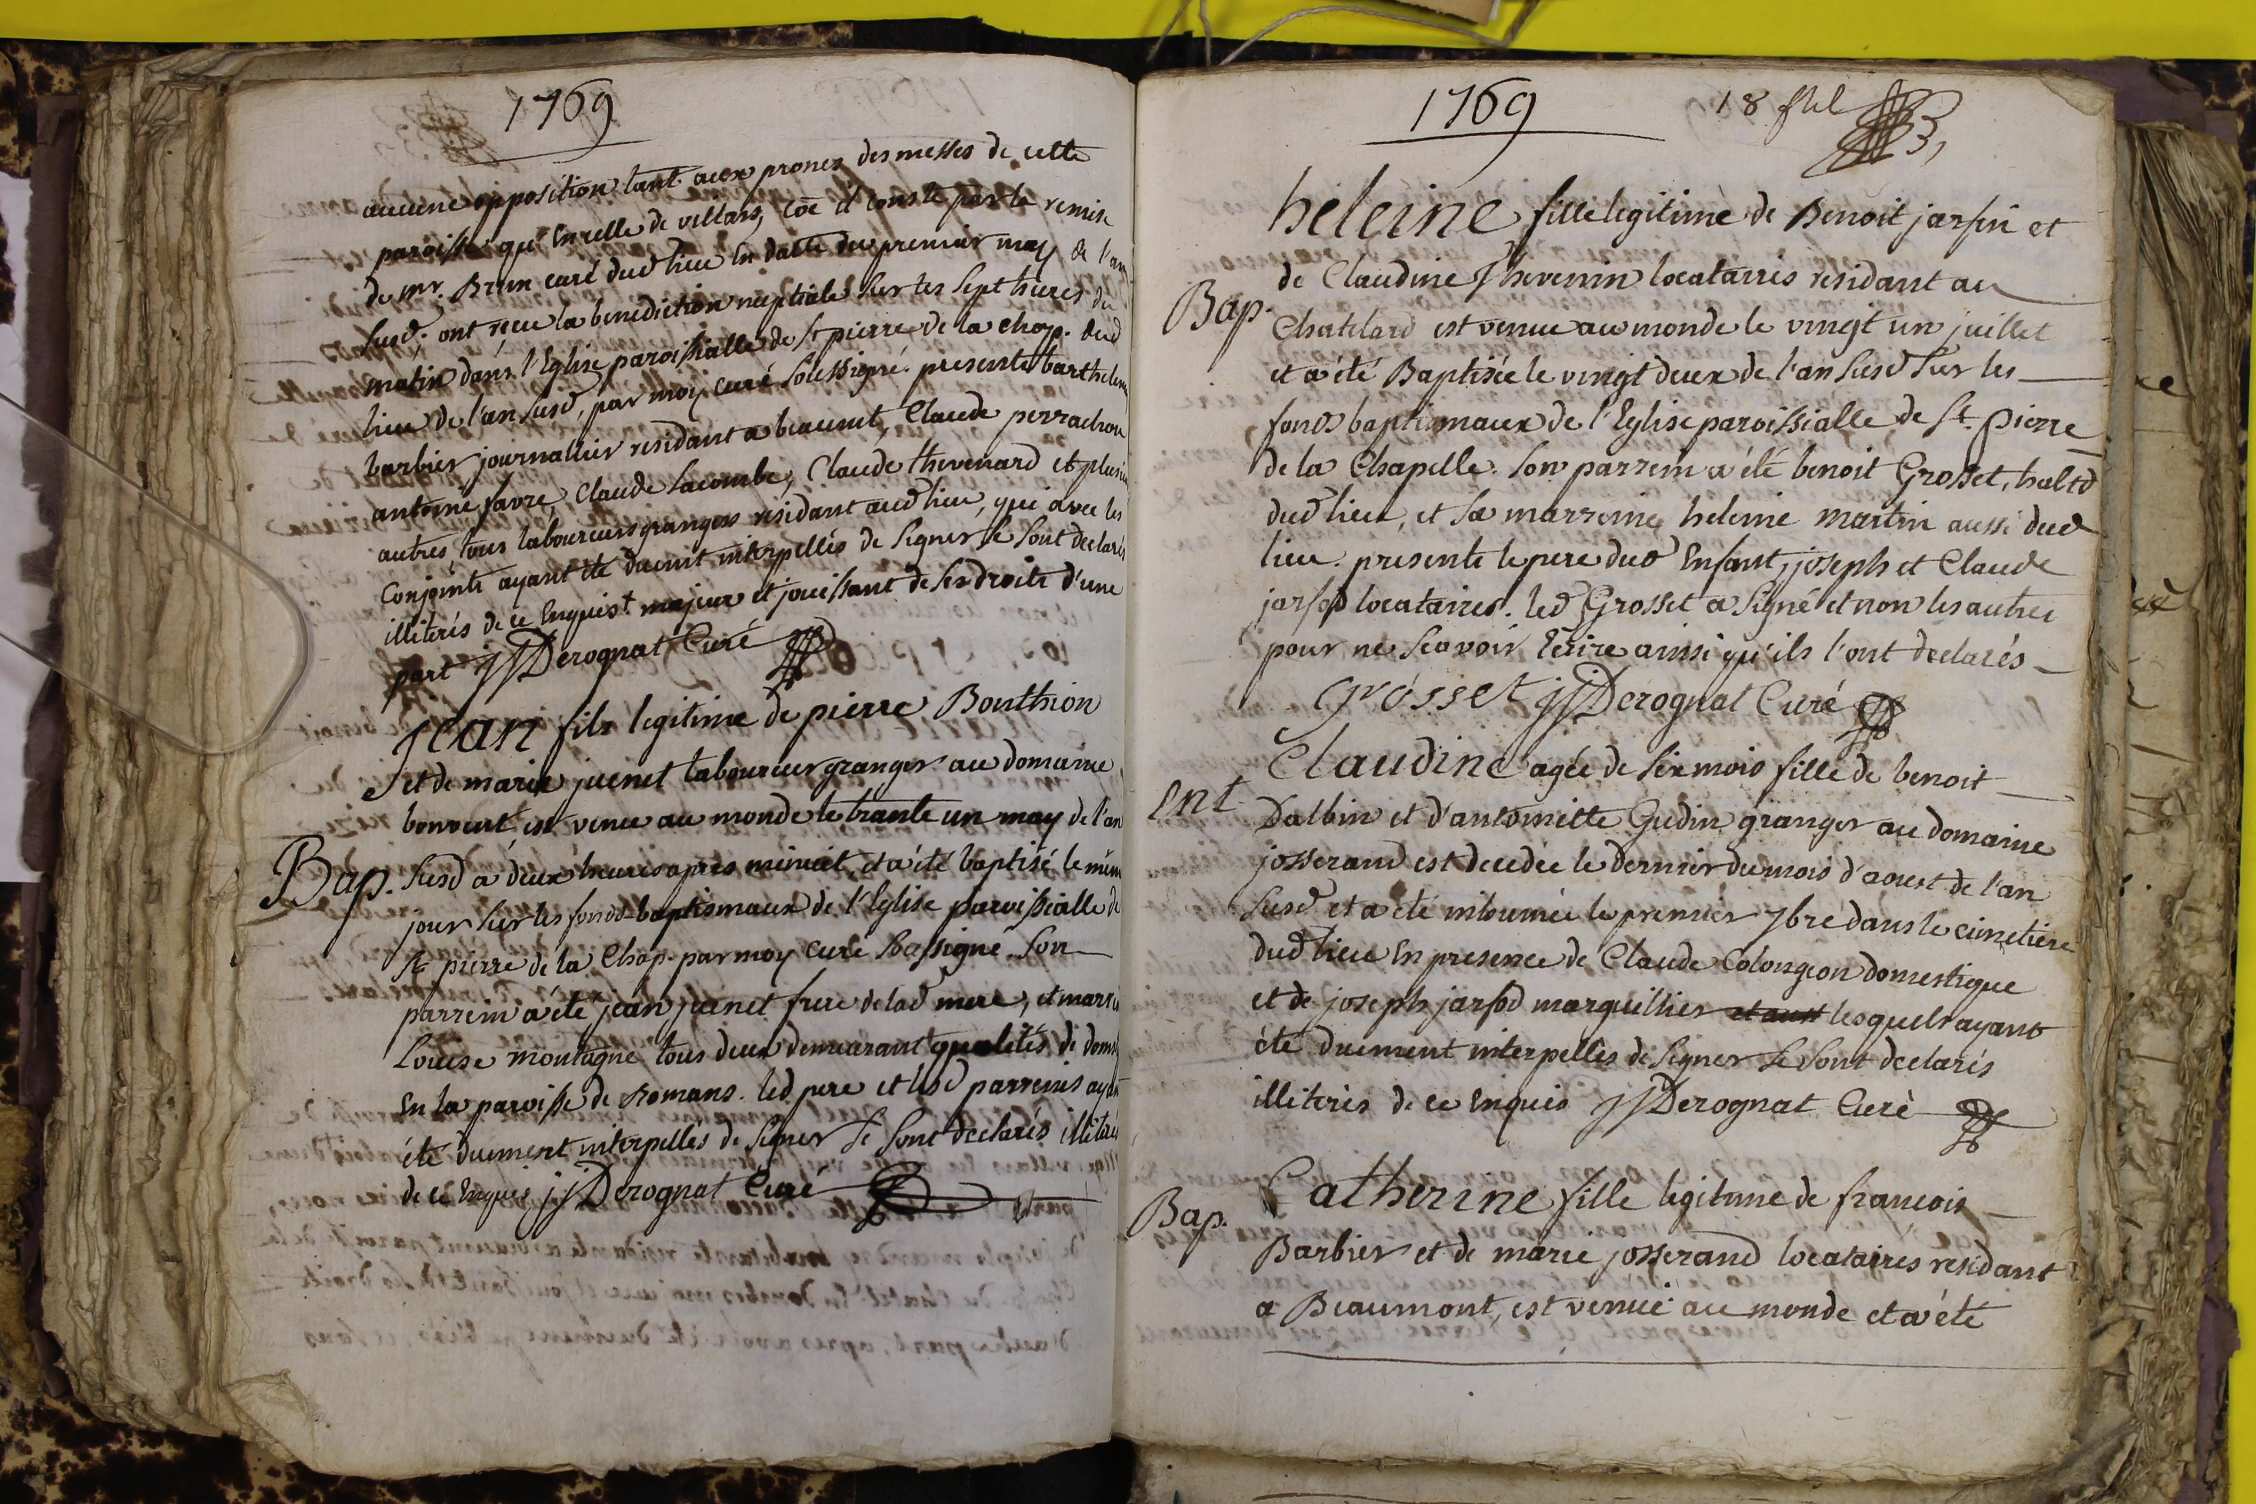 1769
aucune opposition tant aux prones des messes de cette
paroisse qu'en celle de villars, coe il conste par la remise
de mr. Brun curé dud lieu en datte du premier may de l'an
susd. ont reçu la benediction nuptiale sur les sept heures du
matin dans l'Eglise paroissialle de st pierre de la chap. dud
lieu de l'an susd, par moy curé soussigné. presents barthelem
barbier journallier residant a beaumt, Claude perrachon
antoine favre, Claude Lacombe, Claude thevenard et plusieu
autres tous laboureurs grangers residant aud lieu, qui avec les
conjoints ayant été duemt interpellés de signer se sont declarés
illiterés de ce enquist majeur et jouissant de ses droits d'une
part jjDerognat Curé
Jean fils legitime de pierre Bouthion
et de marie juenet laboureur granger au domaine
bonvent est venu au monde le trante un may de l'an
Bap. susd a deux heures apres minuit, et a été baptisé le mem
jour sur les fonds baptismaux de l'Eglise paroissialle de
st pierre de la Chap. par moy curé soussigné. son
parrein a été jean juenet frere de lad mere, et marre
Louise montagne tous deux demeurant qualités de dom
en la paroisse de romans. led pere et lesd parreins ayan
été duement interpellés de signer se sont declarés illiterés
de ce enquis jjDerognat Curé
1769
18 fllel
heleine fille legitime de Benoit jarfin et
de Claudine Thevenin locataires residant au
Bap. Chatelard est venue au monde le vingt un juillet
et a été Baptisée le vingt deux de l'an susd sur les
fonds baptismaux de l'Eglise paroissialle de St. pierre
de la Chapelle. son parrein a été benoit Grosset, habtd
dud lieu, et sa marreine heleine martin aussi dud
lieu. presents le pere dud enfant, joseph et Claude
jarfod locataires. led Grosset a signé et non les autres
pour ne scavoir ecrire ainsi qu'ils l'ont declarés
grosset jjDerognat Curé
Claudine agée de six mois fille de benoit
Ent Dalbin et d'antoinette Gudin granger au domaine
josserand est decedée le dernier du mois d'aoust de l'an
susd et a été inhumée le premier 7bre dans le cimetiere
dud lieu en presence de Claude Colongeon domestique
et de joseph jarfod marguillier et aust lesquels ayans
été duement interpellés de signer se sont declarés
illiterés de ce enquis jjDerognat Curé
Bap. Catherine fille legitime de francois
Barbier et de marie josserand locataires residant
a Beaumont, est venue au monde et a été